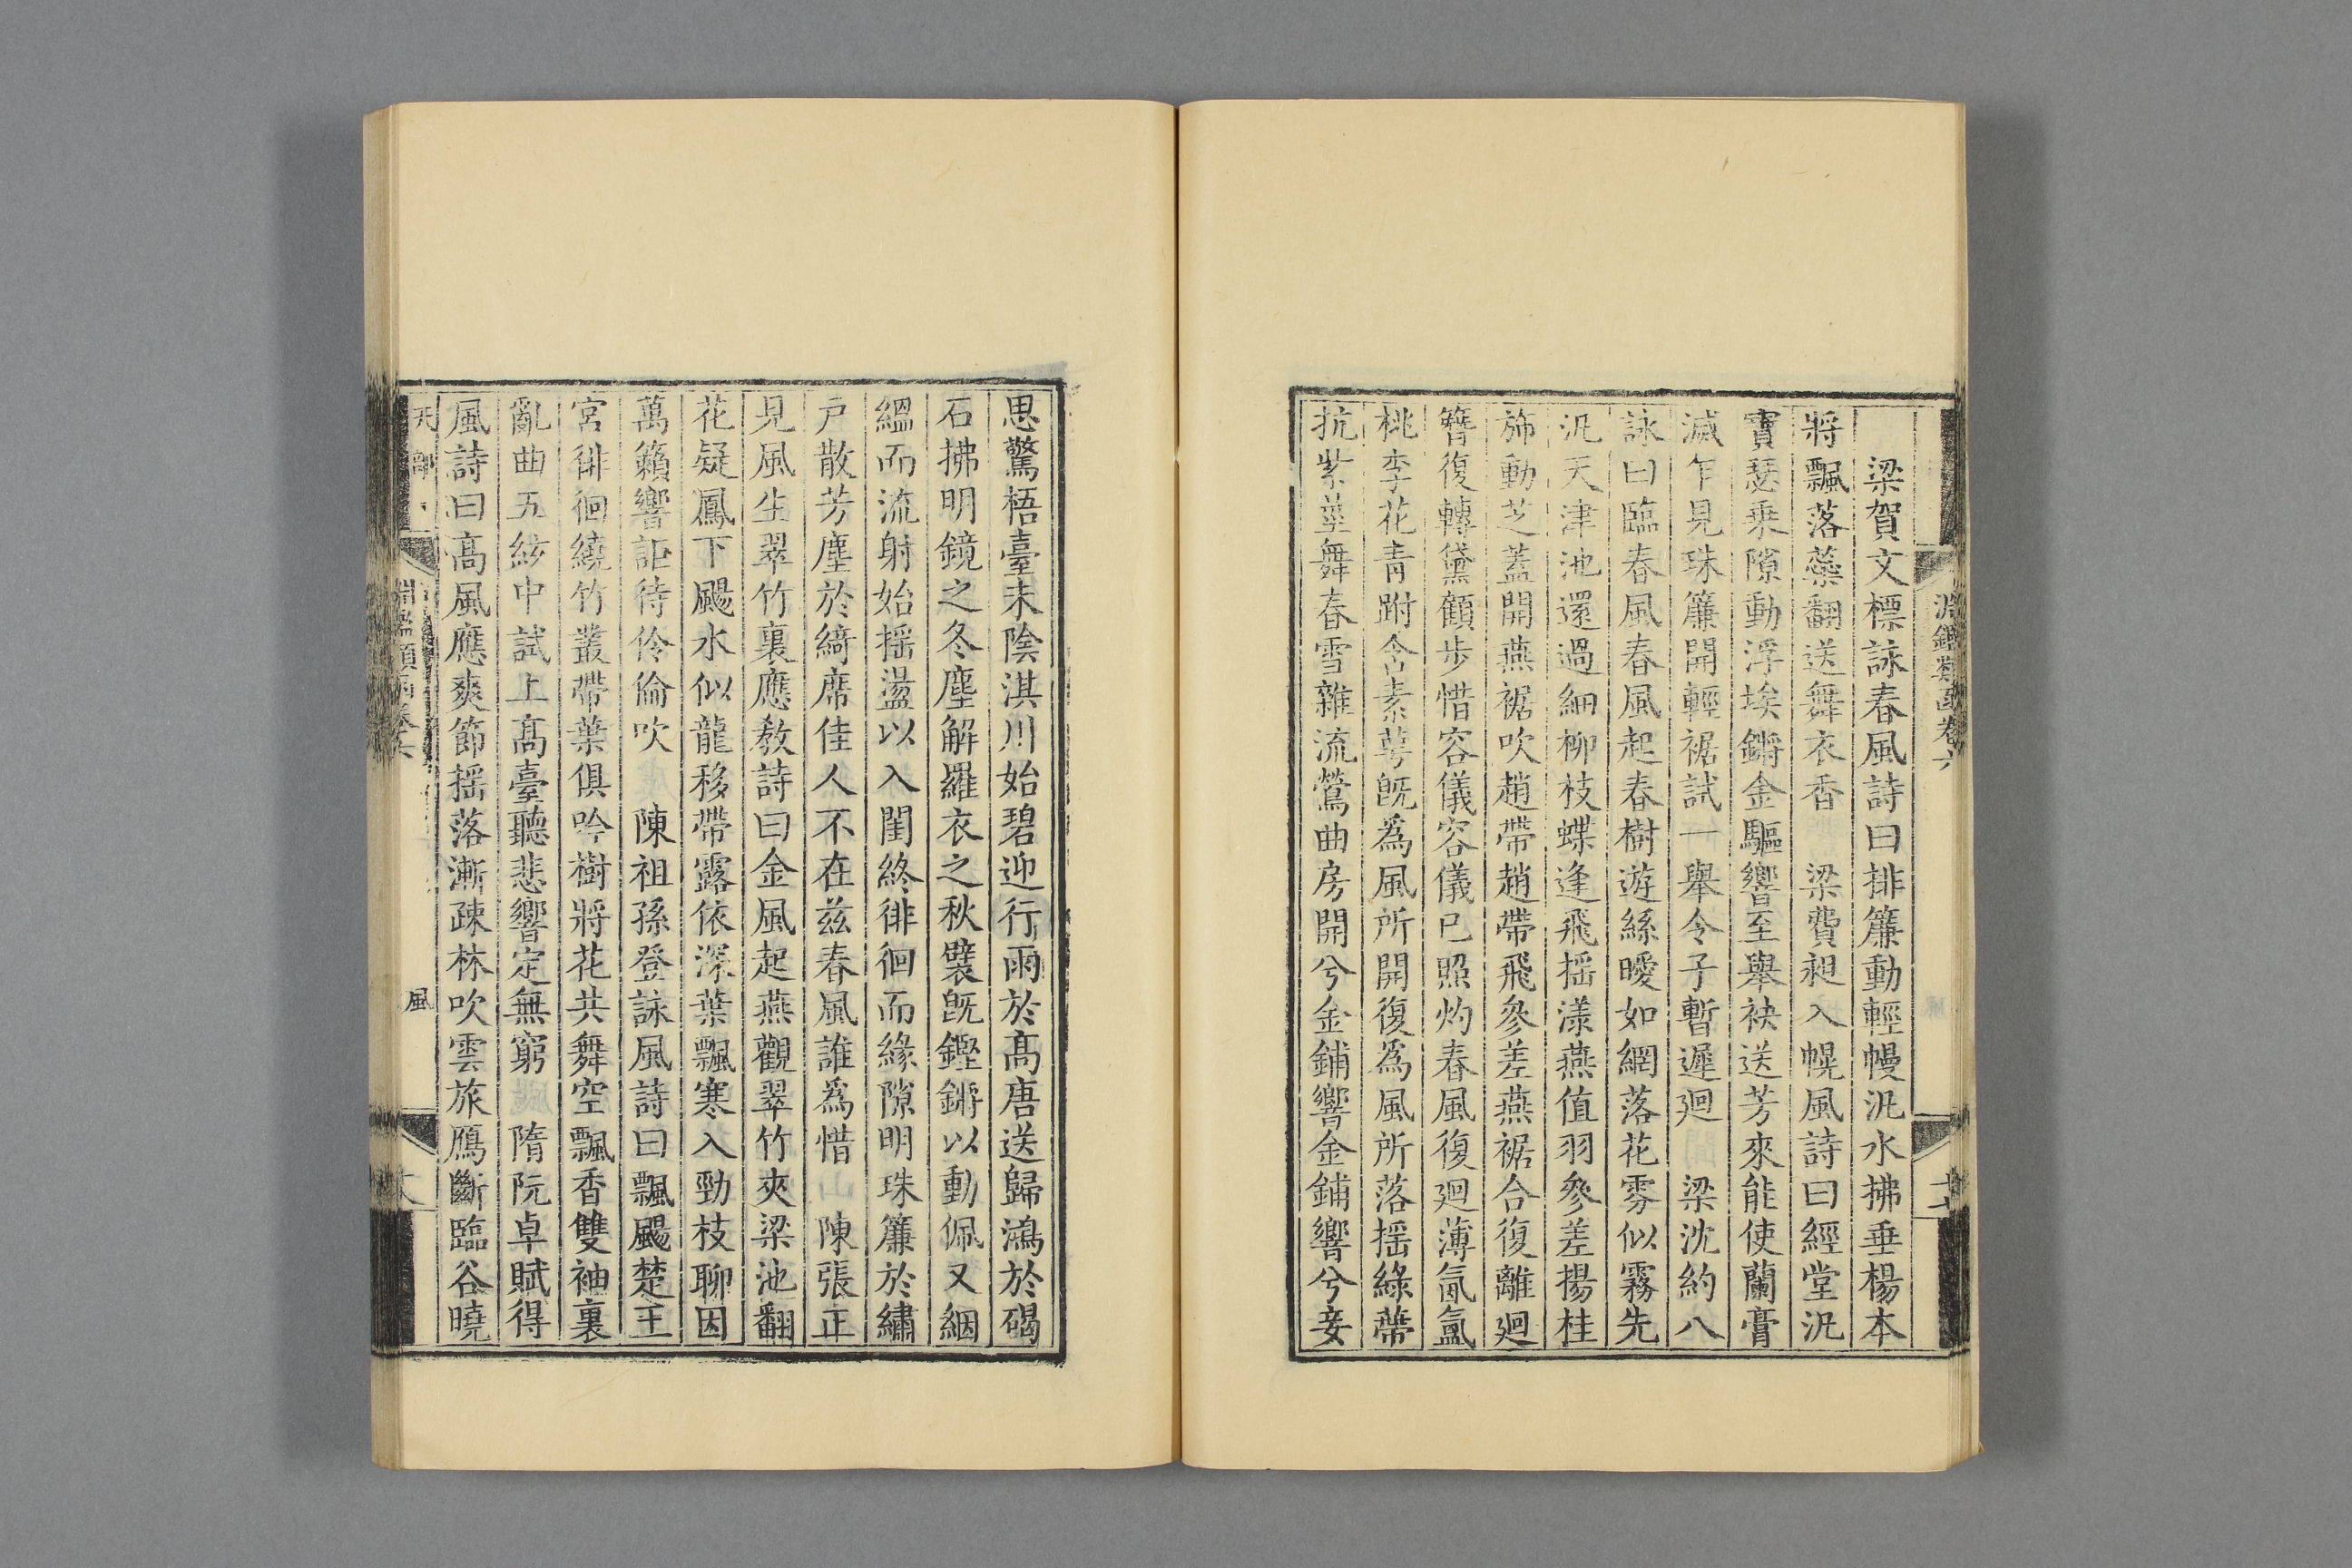 淵鑑類函卷六
十七
梁賀文標詠春風詩曰排簾動輕幔汎水拂垂楊本
將飄落蘂翻送舞衣香　梁費昶入幌風詩曰經堂汎
寶瑟乘隙動浮埃鏘金驅響至舉袂送芳來能使蘭膏
滅乍見珠簾開輕裾試一舉令子暫遲廻　梁沈約八
詠曰臨春風春風起春樹遊絲曖如網落花雰似霧先
汎天津池還過細柳枝蝶逢飛搖漾燕值羽參差揚桂
斾動芝蓋開燕裾吹趙帶趙帶飛參差燕裾合復離廻
簪復轉黛顧步惜容儀容儀已照灼春風復廻薄氤氳
桃李花青跗含素萼既為風所開復為風所落搖綠蔕
抗紫莖舞春雪雜流鶯曲房開兮金鋪響金鋪響兮妾
思驚梧臺未陰淇川始碧迎行雨於高唐送歸鴻於碣
石拂明鏡之冬塵解羅衣之秋襞既鏗鏘以動佩又絪
縕而流射始搖盪以入閨終徘徊而緣隙明珠簾於繡
戶散芳塵於綺席佳人不在茲春風誰爲惜　陳張正
見風生翠竹裏應敎詩曰金風起燕觀翠竹夾梁池翻
花疑鳳下颺水似龍移帶露依深葉飄寒入勁枝聊因
萬籟響詎待伶倫吹　陳祖孫登詠風詩曰飄颺楚王
宮徘徊繞竹叢帶葉俱吟樹將花共舞空飄香雙袖裏
亂曲五絃中試上高臺聽悲響定無窮　隋阮卓賦得
風詩曰高風應爽節搖落漸疎林吹雲旅鴈斷臨谷曉
天部
淵鑑類函卷六
風